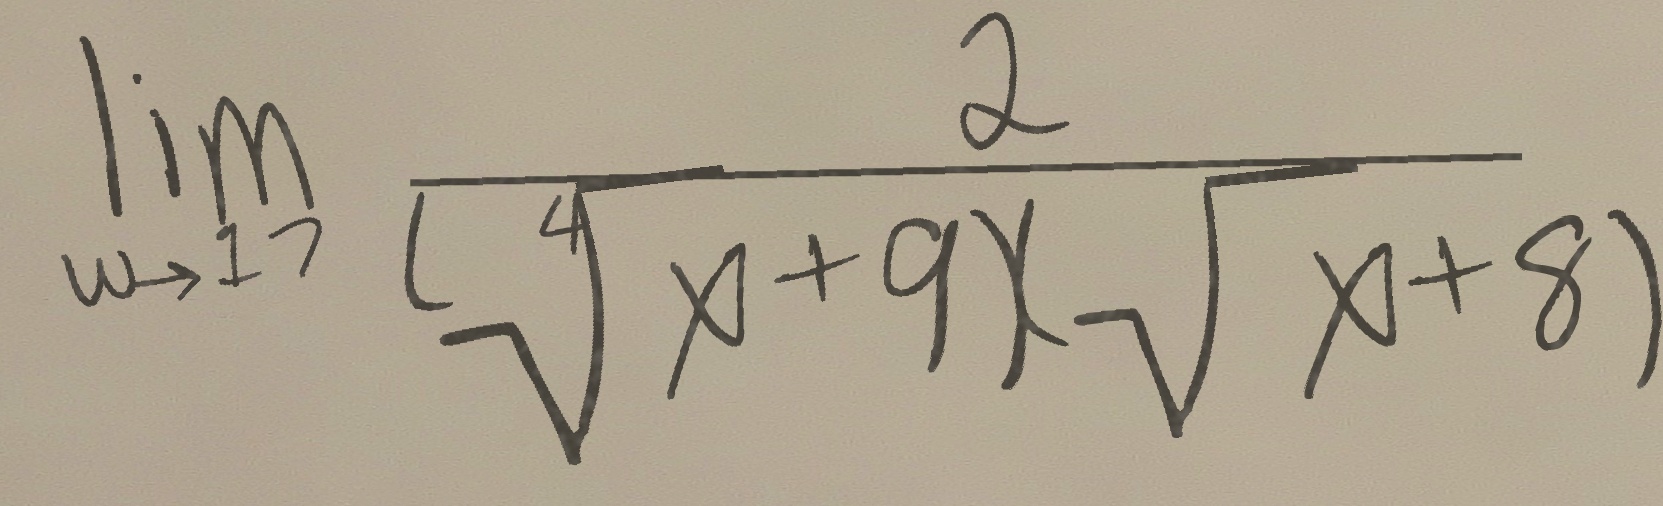 \lim_{w \to 17} \frac{2}{(\sqrt[4]{x}+9)(\sqrt{x}+8)}